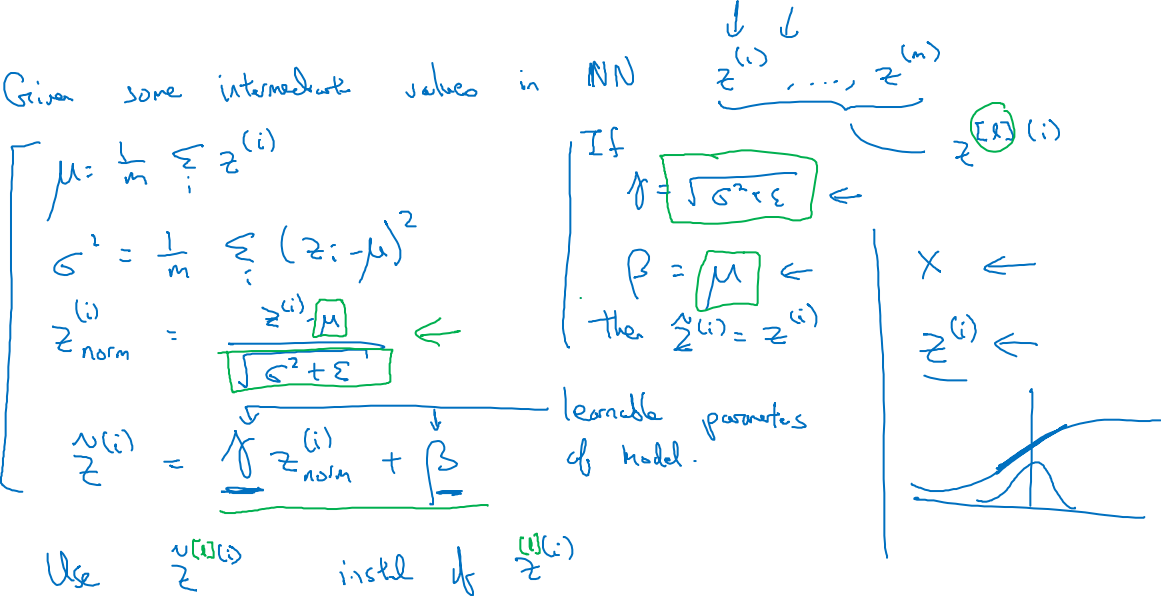 Given some intermediate values in NN z^(i), ...., z^(m)
z^[l](i)
μ = 1/m Σ_i z^(i)
σ² = 1/m Σ_i (z_i - μ)²
z_norm^(i) = (z^(i) - μ) / √(σ² + ε) ←
z̃^(i) = γ z_norm^(i) + β
learnable parameters
of model.
If
γ = √(σ² + ε) ←
β = μ ←
then z̃^(i) = z^(i)
X ←
z^(i) ←
Use z̃^[l](i) instead of z^[l](i)